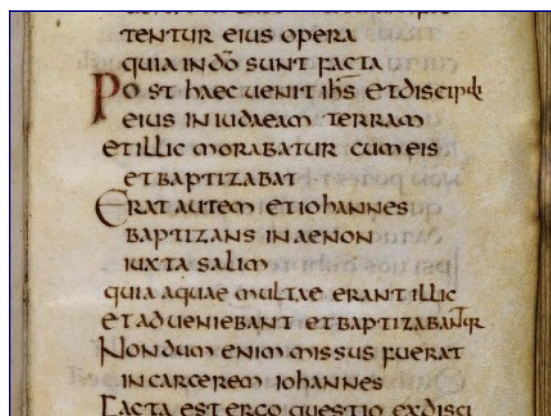 tentur eius opera
quia in dō sunt facta
Post haec uenit ihs et discipuli
eius in iudaeam terram
et illic morabatur cum eis
et baptizabat
Erat autem et iohannes
baptizans in aenon
iuxta salim
quia aquae multae erant illic
et adueniebant et baptizabantur
Nondum enim missus fuerat
in carcerem iohannes
Facta est ergo questio ex disci